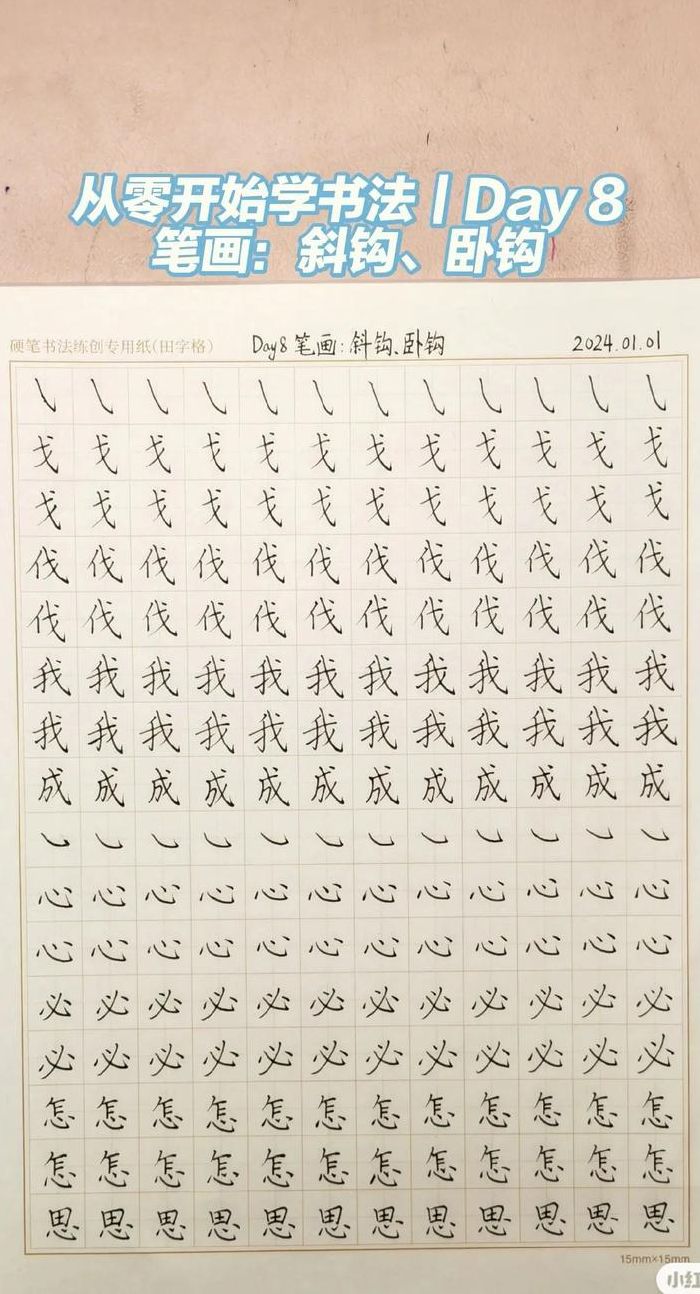 从零开始学书法 | Day 8
笔画：斜钩、卧钩
硬笔书法练创专用纸(田字格) Day8 笔画:斜钩、卧钩 2024.01.01
㇂ ㇂ ㇂ ㇂ ㇂ ㇂ ㇂ ㇂ ㇂ ㇂ ㇂ ㇂
戈 戈 戈 戈 戈 戈 戈 戈 戈 戈 戈 戈
戈 戈 戈 戈 戈 戈 戈 戈 戈 戈 戈 戈
伐 伐 伐 伐 伐 伐 伐 伐 伐 伐 伐 伐
伐 伐 伐 伐 伐 伐 伐 伐 伐 伐 伐 伐
我 我 我 我 我 我 我 我 我 我 我 我
我 我 我 我 我 我 我 我 我 我 我 我
成 成 成 成 成 成 成 成 成 成 成 成
㇃ ㇃ ㇃ ㇃ ㇃ ㇃ ㇃ ㇃ ㇃ ㇃ ㇃ ㇃
心 心 心 心 心 心 心 心 心 心 心 心
心 心 心 心 心 心 心 心 心 心 心 心
必 必 必 必 必 必 必 必 必 必 必 必
必 必 必 必 必 必 必 必 必 必 必 必
怎 怎 怎 怎 怎 怎 怎 怎 怎 怎 怎 怎
怎 怎 怎 怎 怎 怎 怎 怎 怎 怎 怎 怎
思 思 思 思 思 思 思 思 思 思 思 思
15mm×15mm
小红